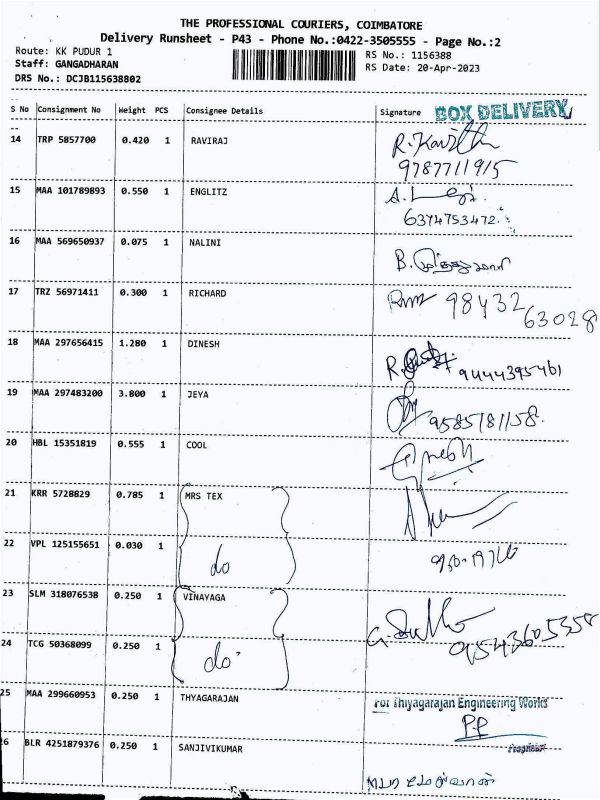 THE PROFESSIONAL COURIERS, COIMBATORE
Delivery Runsheet - P43 - Phone No.:0422-3505555 - Page No.:2
Route: KK PUDUR 1
RS No.: 1156388
Staff: GANGADHARAN
RS Date: 20-Apr-2023
DRS No.: DCJB115638802
S No Consignment No Weight PCS Consignee Details Signature BOX DELIVERY
14 TRP 5857700 0.420 1 RAVIRAJ
9787711915
15 MAA 101789893 0.550 1 ENGLITZ
6374753472
16 MAA 569650937 0.075 1 NALINI
17 TRZ 56971411 0.300 1 RICHARD 98432
63028
18 MAA 297656415 1.280 1 DINESH
9444395461
19 MAA 297483200 3.800 1 JEYA
9585181158
20 HBL 15351819 0.555 1 COOL
21 KRR 5728829 0.785 1 MRS TEX
22 VPL 125155651 0.030 1 do
23 SLM 318076538 0.250 1 VINAYAGA
24 TCG 50368099 0.250 1 do
9543605358
25 MAA 299660953 0.250 1 THYAGARAJAN
For Thiyagarajan Engineering Works
P.P
Proprietor
26 BLR 4251879376 0.250 1 SANJIVIKUMAR